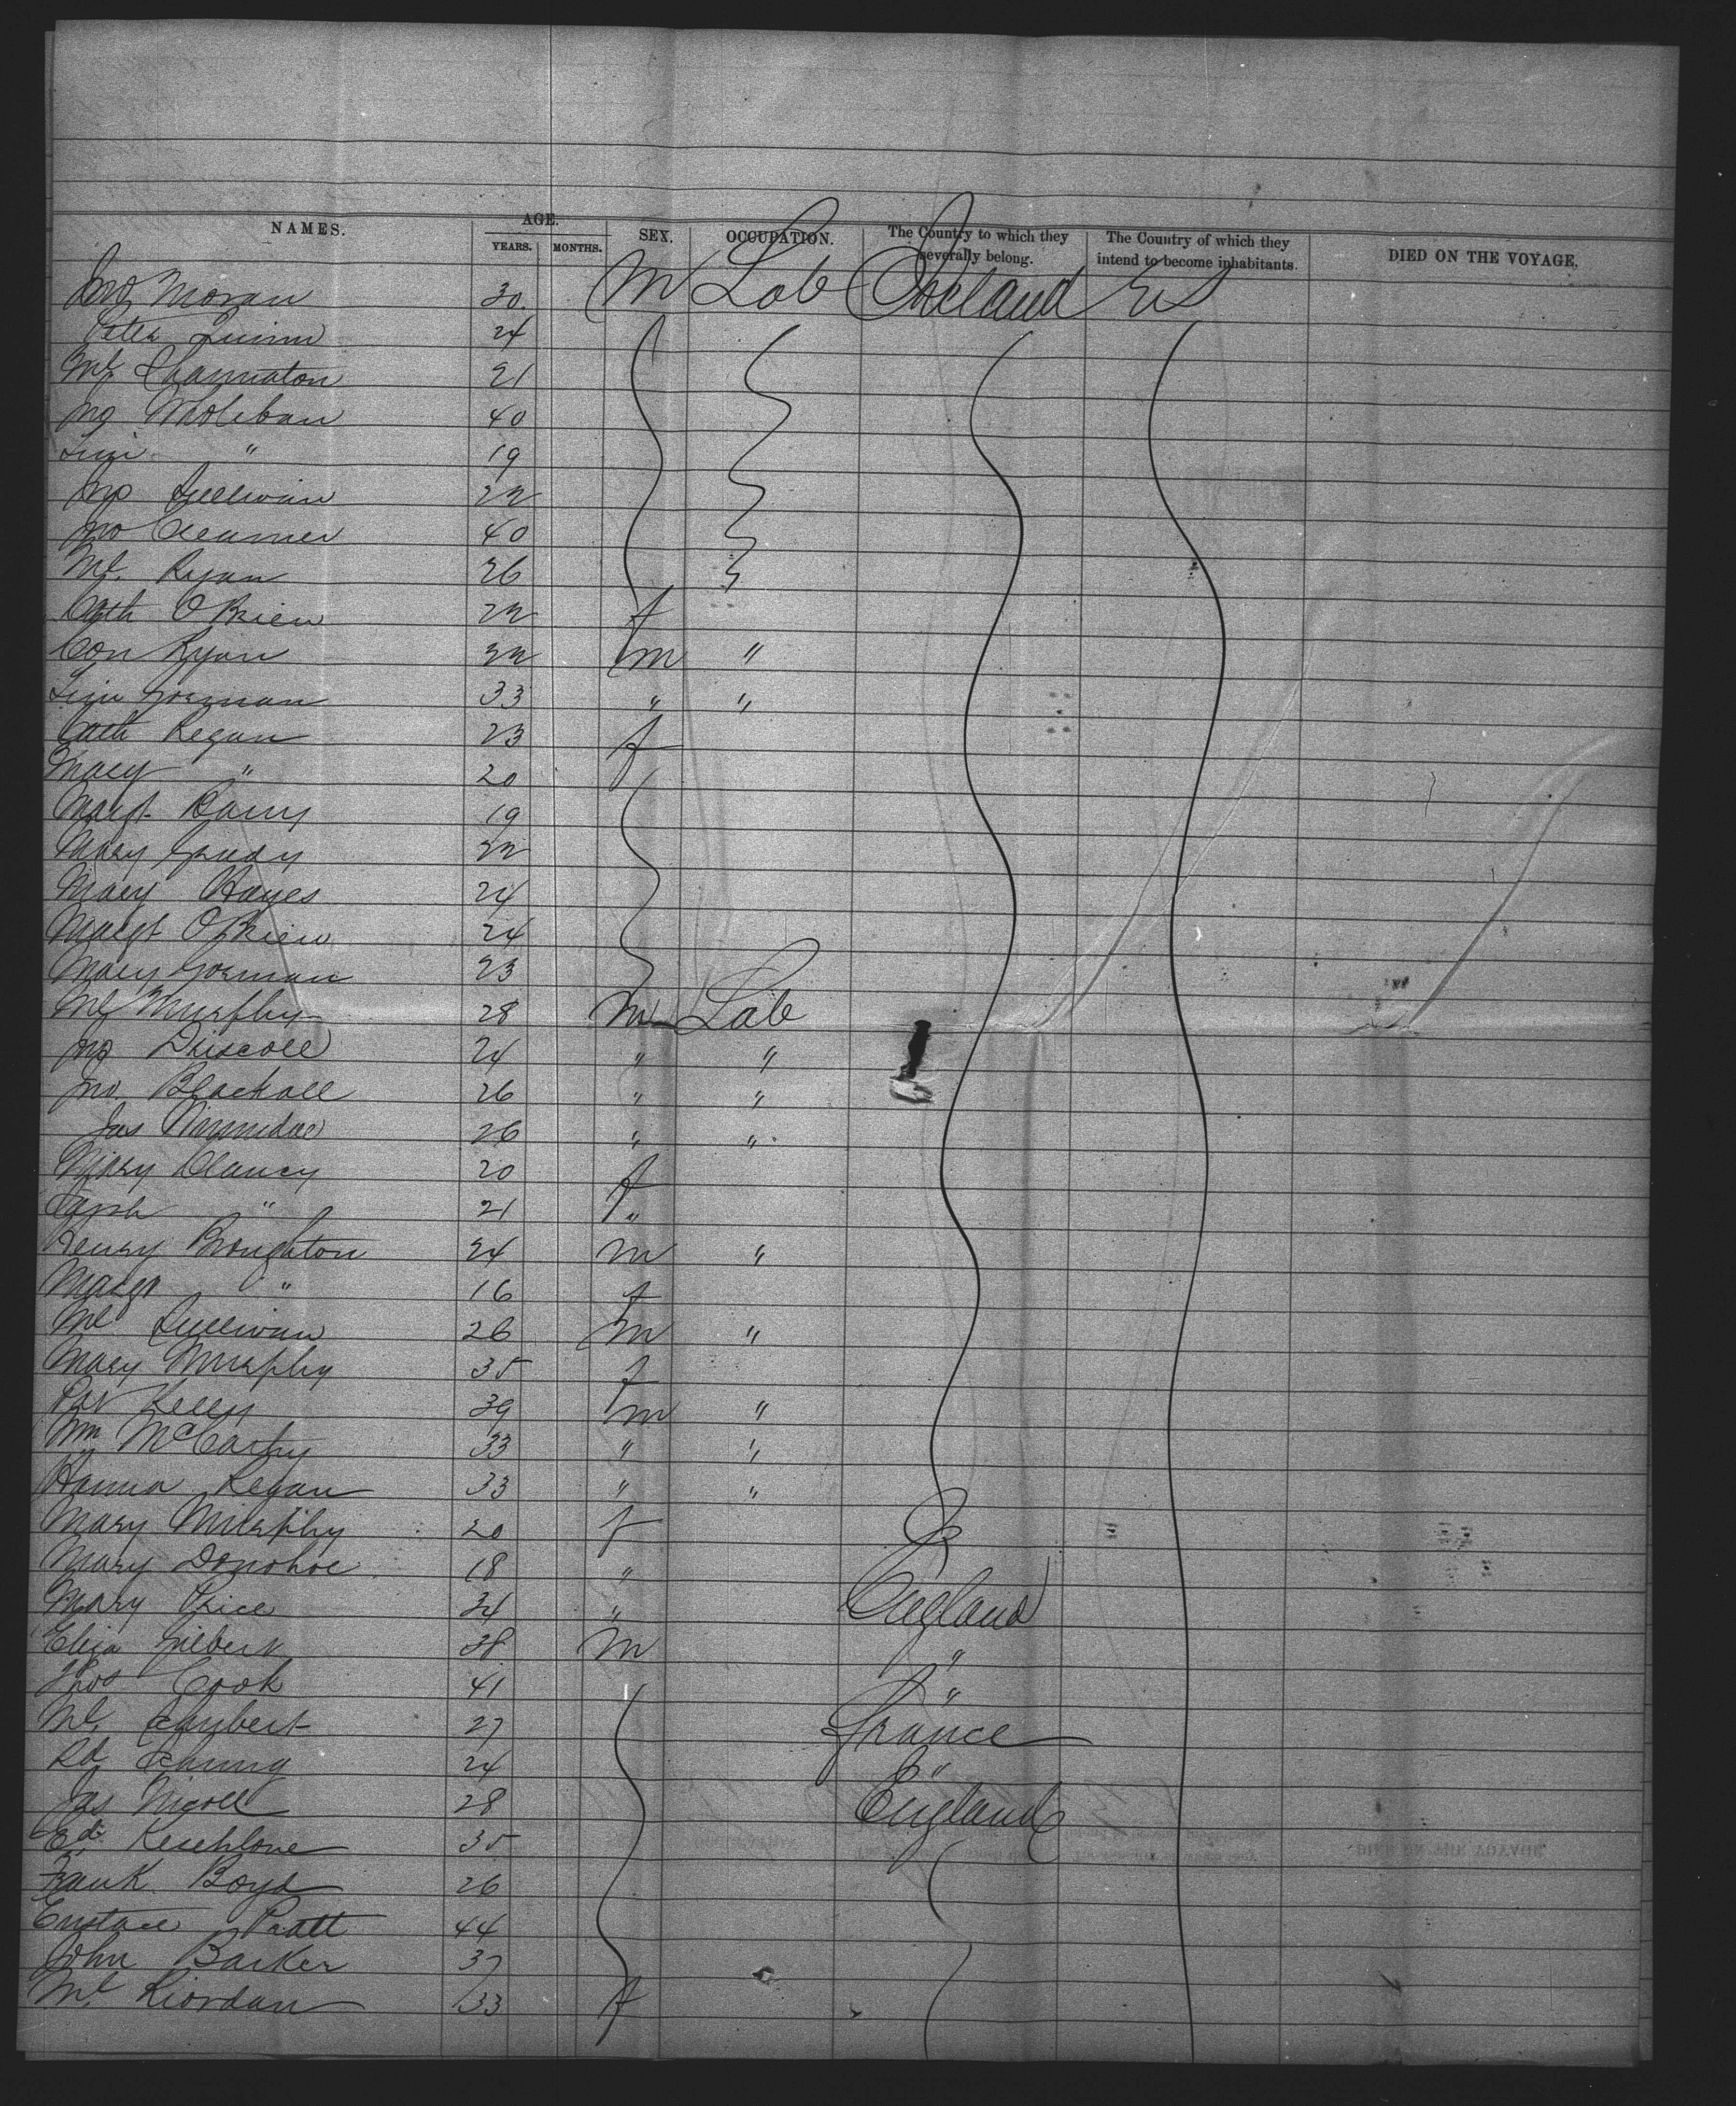 NAMES. AGE. YEARS. MONTHS. SEX. OCCUPATION. The Country to which they severally belong. The Country of which they intend to become inhabitants. DIED ON THE VOYAGE.
Jno Moran 30 M Lab Ireland US
Peter Quinn 24
Ml 21
Jno 40
" 19
Jno Sullivan 22
Jno 40
Ml. Ryan 26
Cath O'Brien 22 f
Con Ryan 22 m "
Gorman 33 " "
Cath Regan 23 f
Mary " 20
Margt Barry 19
Mary Grady 22
Mary Hayes 24
Margt O'Brien 24
Mary Gorman 23
Ml Murphy 28 M Lab
Jno Driscoll 24 " "
Jno. Blackall 26 " "
Jas 26 " "
Mary Clancy 20 f
" 21 "
Henry Broughton 24 m "
Margt " 16 f
Ml Sullivan 26 m "
Mary Murphy 35 f
Pat Kelly 39 m "
Wm McCarthy 33 " "
Hanna Regan 33 " "
Mary Murphy 20 f
Mary Donohoe 18 "
Mary Price 34 " England
Eliza Gilbert 38 M "
Thos Cook 41 "
Ml. Schubert 27 France
Rd 24 "
Jas Nicoll 28 England
Ed. 35
Frank Boyd 26
Eustace Pratt 44
John Barker 37
Ml Riordan 33 f